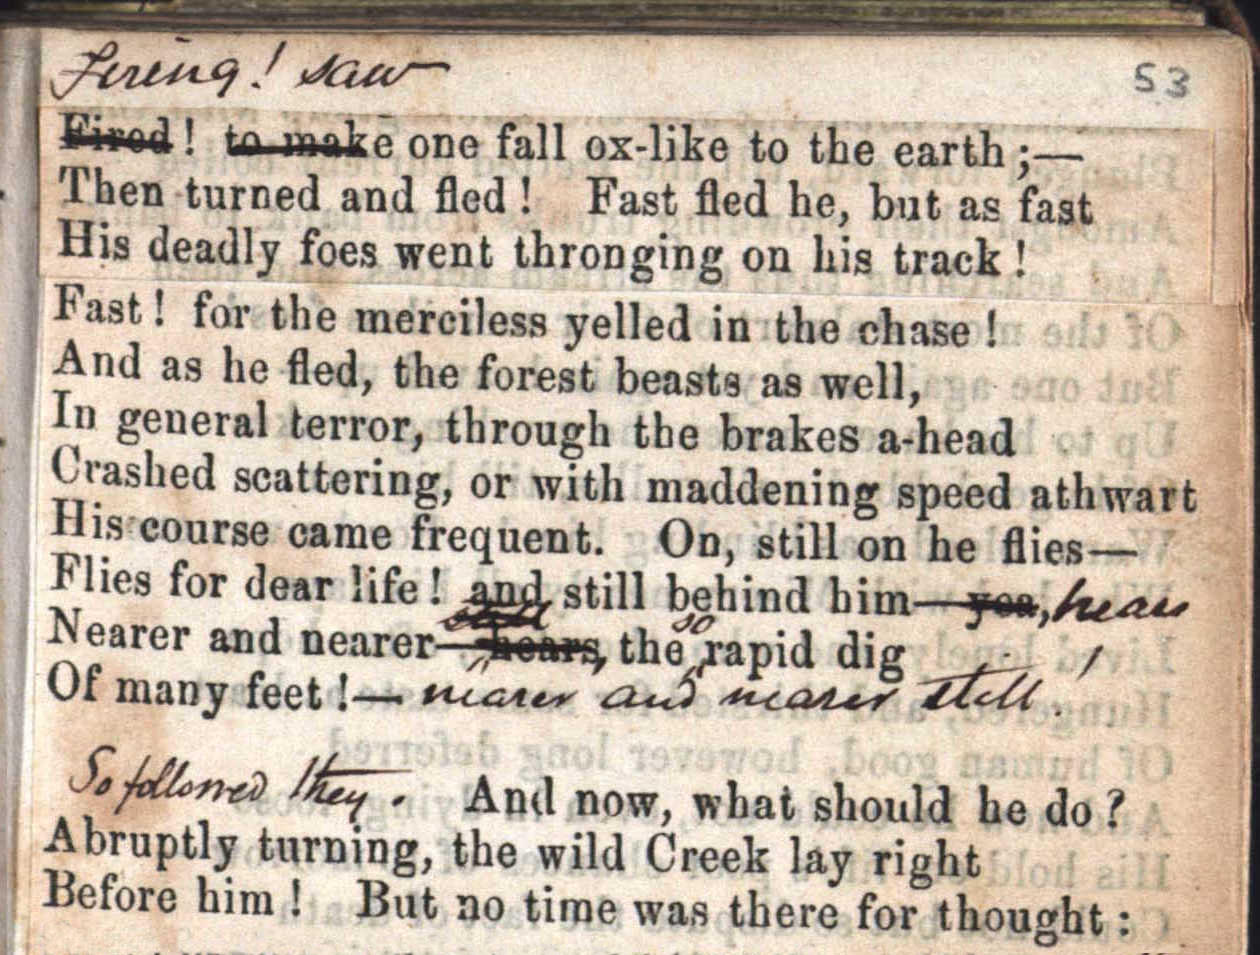 Firing! saw
53
Fired! to make one fall ox-like to the earth;—
Then turned and fled! Fast fled he, but as fast
His deadly foes went thronging on his track!
Fast! for the merciless yelled in the chase!
And as he fled, the forest beasts as well,
In general terror, through the brakes a-head
Crashed scattering, or with maddening speed athwart
His course came frequent. On, still on he flies—
Flies for dear life! and still behind him—yea, hears
so
Nearer and nearer—hears, the rapid dig
Of many feet!—nearer and nearer still!
So followed they. And now, what should he do?
Abruptly turning, the wild Creek lay right
Before him! But no time was there for thought: